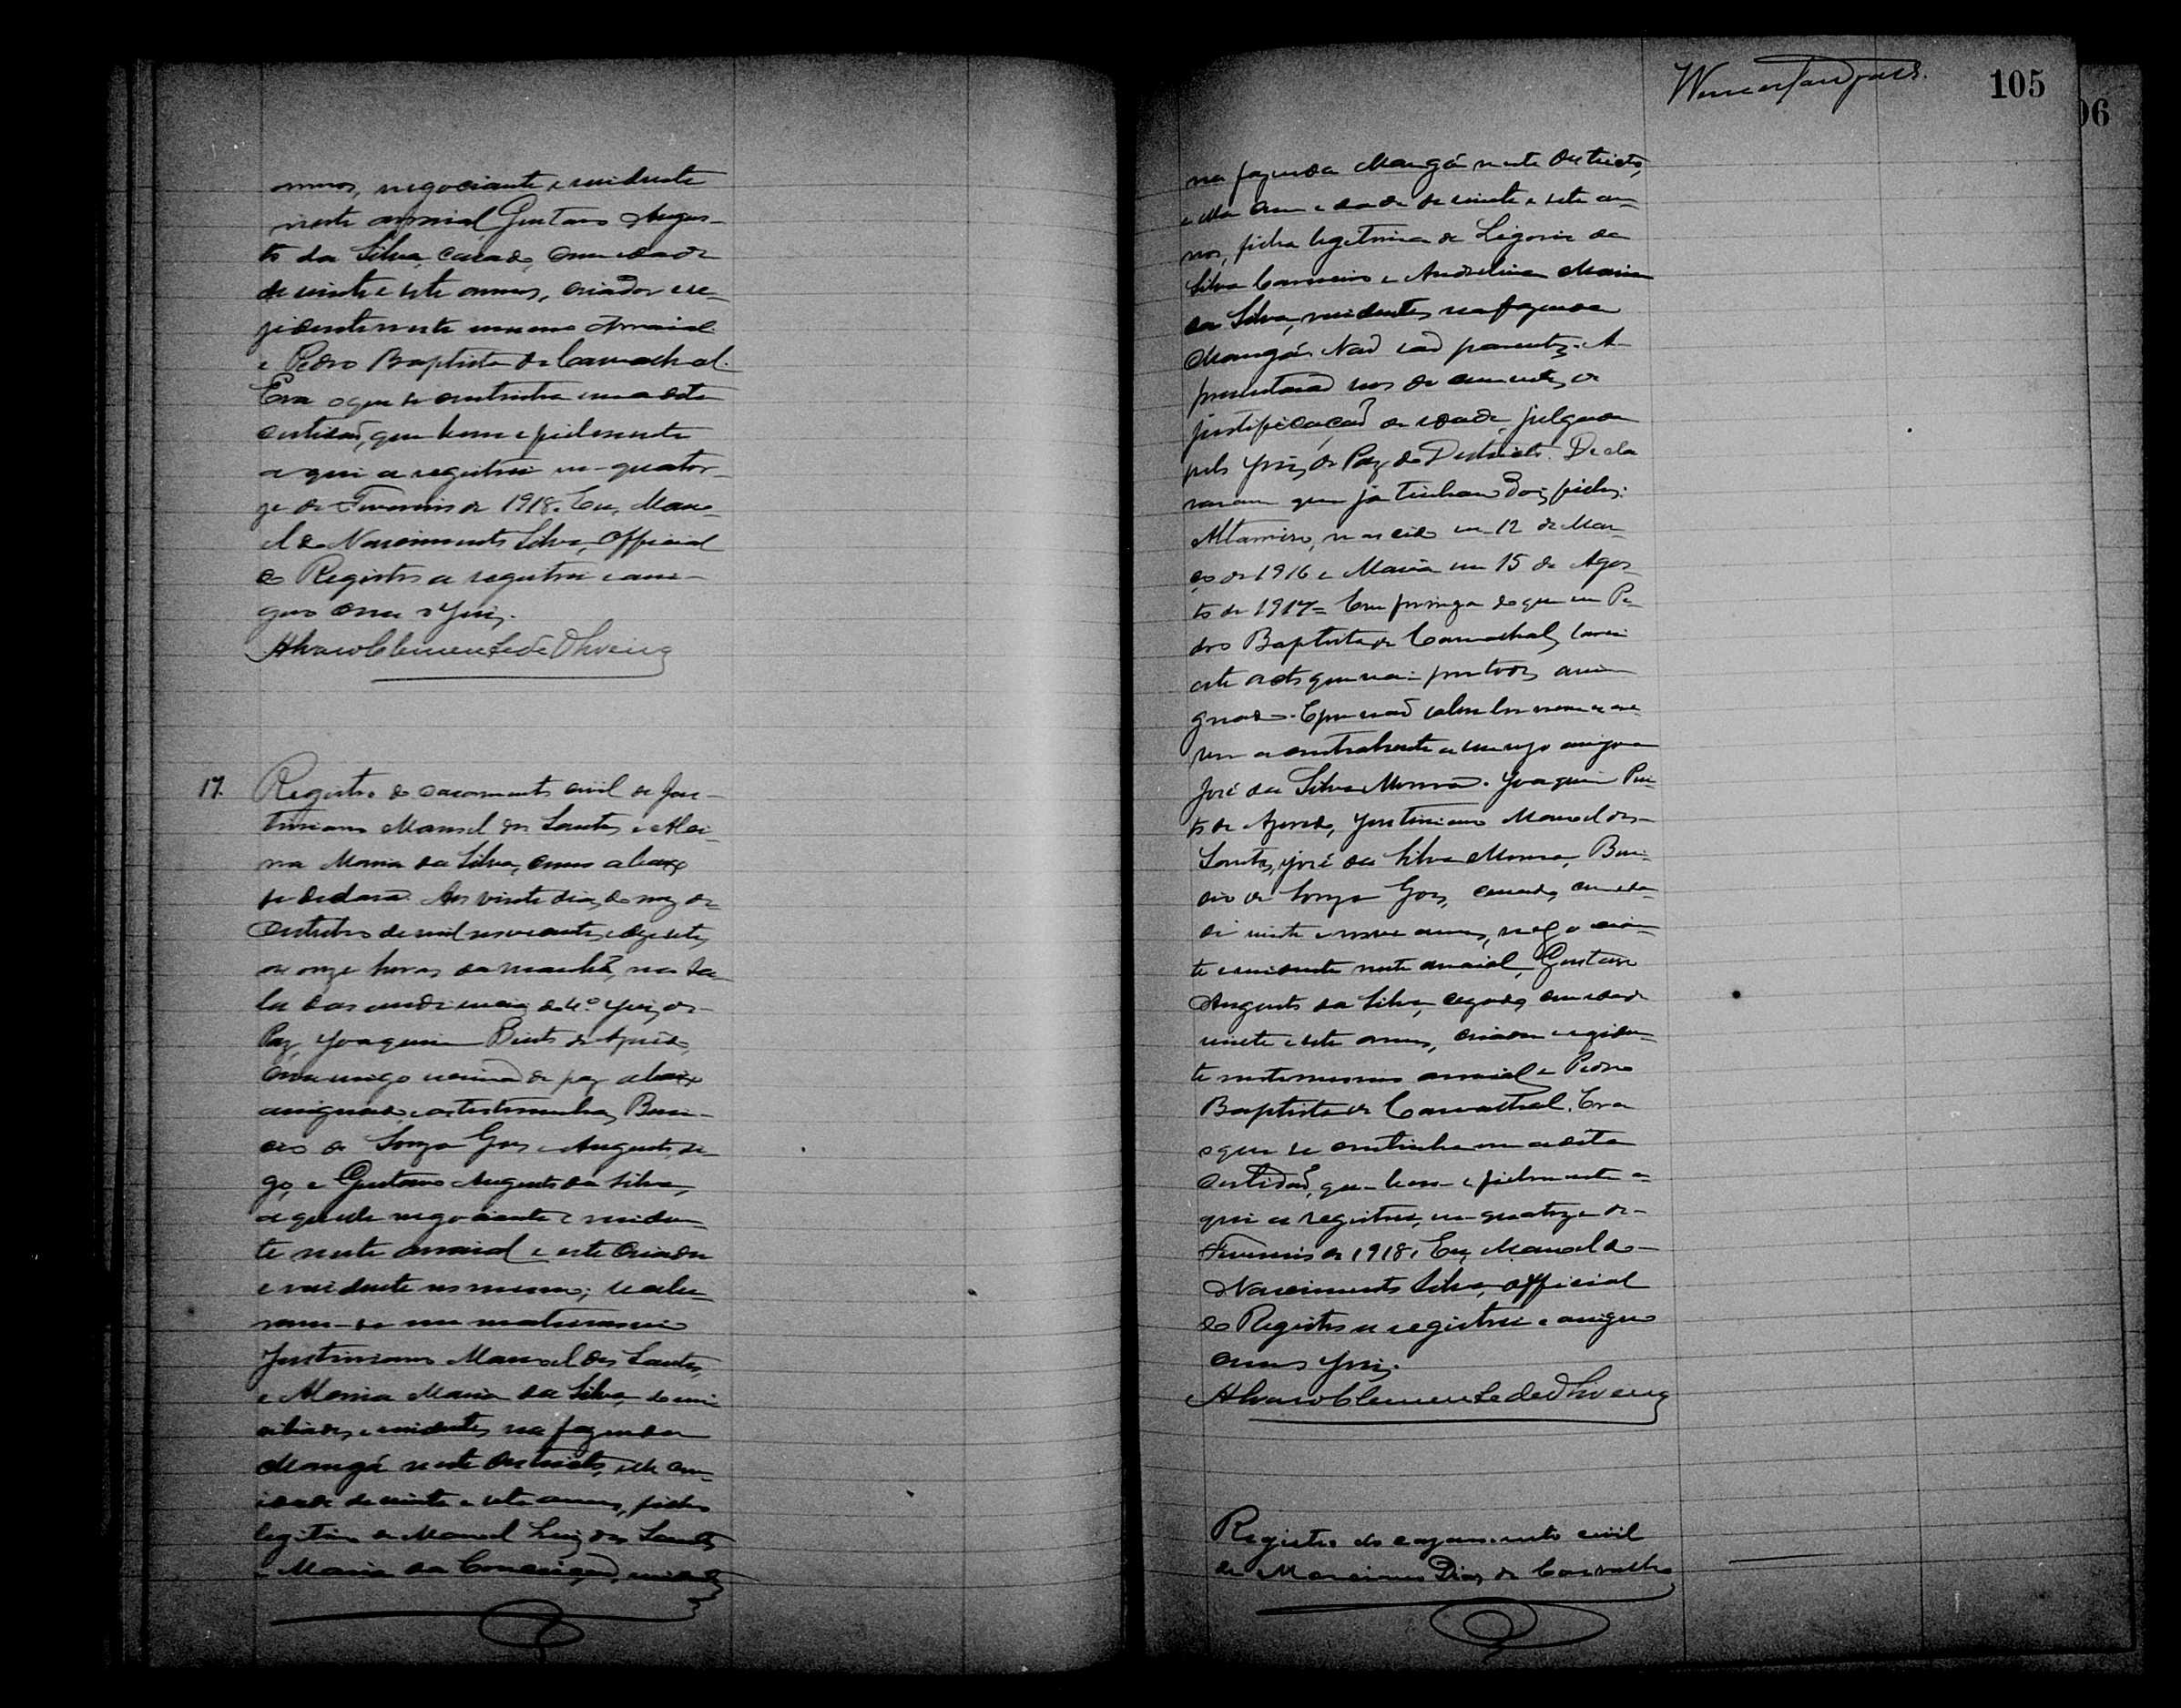 annos, negociante e residente
neste arraial, Gustavo Augus-
to da Silva, casado, com idade
de vinte e sete annos, criador e re-
zidente neste mesmo Arraial
e Pedro Baptista de Carvalhal.
Era o que se continha em a dita
certidão, que bem e fielmente
aqui a registrei em quator-
ze de Fevereiro de 1918. Eu, Mano-
el do Nascimento Silva, Official
do Registro a registrei e assi-
gno com o Juiz.
Alvaro Clemente de Oliveira
17. Registro do casamento civil de Jus-
tiniano Manoel dos Santos e
Maria da Silva, como abaixo
se declara. Aos vinte dias do mez de
Outubro de mil novecentos e dezesete,
as onze horas da manhã, na sa-
la das audiencias do 1º Juiz de
Paz, Joaquim Pinto de Azevedo,
commigo escrivão de paz abaixo
assignado e as testemunhas,
de Souza Goes e Augusto, di-
go, e Gustavo Augusto da Silva,
aquelle negociante e residen-
te neste arraial e este criador
e residente no mesmo; recebe-
ram-se em matrimonio
Justiniano Manoel dos Santos,
e Maria da Silva, domi-
ciliados e residentes na fazenda
Mangá neste Districto, elle com
idade de vinte e sete annos, filho
legitimo de Manoel Luiz dos Santos
e Maria da Conceição, residentes
105
na fazenda Mangá neste Districto,
e ella com idade de vinte e sete an-
nos, filha legitima de Ligorio da
Silva Carneiro e Andrelina Maria
da Silva, residentes na fazenda
Mangá. Não são parentes. A-
presentarão nos documentos de
justificação de idade, julgada
pelo Juiz de Paz do Districto. Decla-
raram que já tinham dois filhos:
Altamiro, nascido em 12 de Mar-
ço de 1916 e Maria em 15 de Agos-
to de 1917. Em firmeza do que eu Pe-
dro Baptista de Carvalhal, lavrei
este acto que vai por todos assi-
gnado. E por não saber ler nem escre-
ver a contrahente a seu rogo assigna
José da Silva Moura. Joaquim Pin-
to de Azevedo, Justiniano Manoel dos
Santos, José da Silva Moura,
de Souza Goes, casado, com ida-
de vinte e nove annos, negocian-
te e residente neste arraial, Gustavo
Augusto da Silva, cazado, com idade
vinte e sete annos, criador e reziden-
te neste mesmo arraial e Pedro
Baptista de Carvalhal. Era
o que se continha em a dita
certidão, que bem e fielmente a-
qui a registrei, em quatorze de
Fevereiro de 1918. Eu, Manoel do
Nascimento Silva, Official
do Registro a registrei e assigno
com o Juiz.
Alvaro Clemente de Oliveira
Registro do cazamento civil
de Marciano Dias de Carvalho